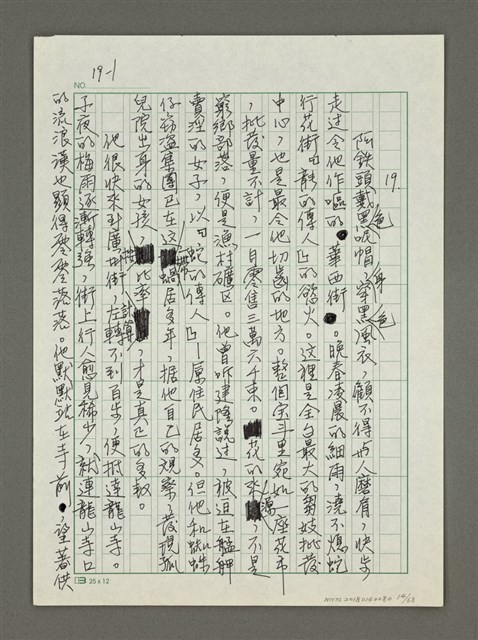 NO. 19-1
19.
阮鉄頭戴黑色呢帽，身穿黑色風衣，顧不得与人磨肩，快步
走过令他作嘔的華西街。晚春凌晨的細雨，澆不熄蛇
行花街「龍的傳人」的慾火。这裡是全台最大的雛妓批發
中心，也是最令他切齒的地方。整個宝斗里宛如一座花市
，批發量不計，一日零售三萬六千束。花的來源，不是
窮鄉部落，便是漁村礦区。他曾听建隆說过，被迫在艋舺
賣淫的女子，以「蛇的傳人」─原住民居多。但他和蜘蛛
仔窃盜集團已在这帶蝸居多年，据他自己的观察，發現孤
兒院出身的女孩，按比率計算，才是真正的多数。
他很快來到廣州街，左轉不到百步，便抵達龍山寺。
子夜的梅雨逐漸轉强，街上行人愈見稀少，就連龍山寺口
的流浪漢也顯得零零落落。他默默站在寺前，望着供
25x12
14/28